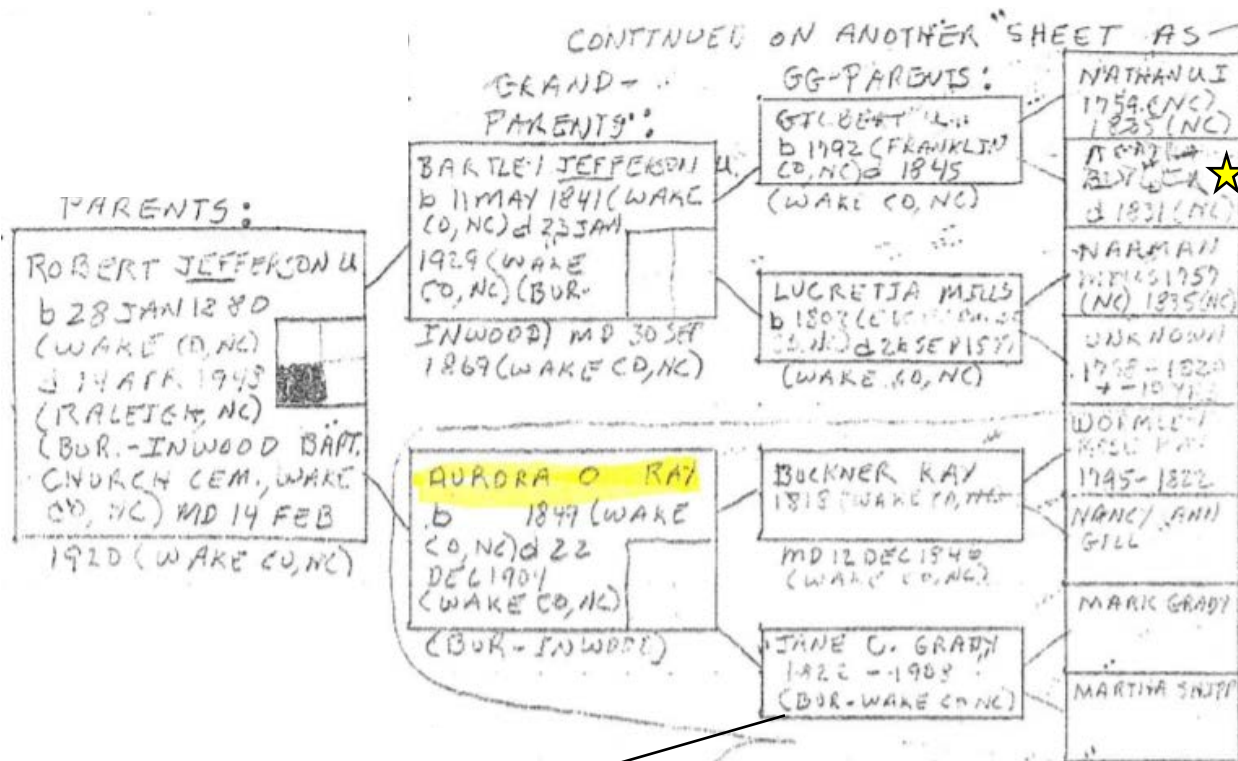 CONTINUED ON ANOTHER "SHEET AS
PARENTS:
ROBERT JEFFERSON U
b 28 JAN 1880
(WAKE CO, NC)
d 14 APR 1943
(RALEIGH, NC)
(BUR.-INWOOD BAPT.
CHURCH CEM., WAKE
CO, NC) MD 14 FEB
1920 (WAKE CO, NC)
GRAND-
PARENTS:
BARTLEY JEFFERSON U.
b 11 MAY 1841 (WAKE
CO, NC) d 23 JAN
1929 (WAKE
CO, NC) (BUR-
INWOOD) MD 30 SEP
1869 (WAKE CO, NC)
AURORA O RAY
b 1849 (WAKE
CO, NC) d 22
DEC 1904
(WAKE CO, NC)
(BUR-INWOOD)
GG-PARENTS:
GILBERT U.
b 1792 (FRANKLIN
CO, NC) d 1845
(WAKE CO, NC)
LUCRETIA MILLS
CO, NC) d SEP
(WAKE CO, NC)
BUCKNER RAY
1818 (WAKE CO, NC)
MD 12 DEC 1846
(WAKE CO, NC)
JANE C. GRADY
1822 - 1903
(BUR-WAKE CO NC)
NATHAN U I
1759 (NC)
1835 (NC)
d 1831 (NC)
NARMAN
1757
(NC) 1835 (NC)
UNKNOWN
1758 - 1820
1795-1822
NANCY ANN
GILL
MARK GRADY
MARTHA SHIPP